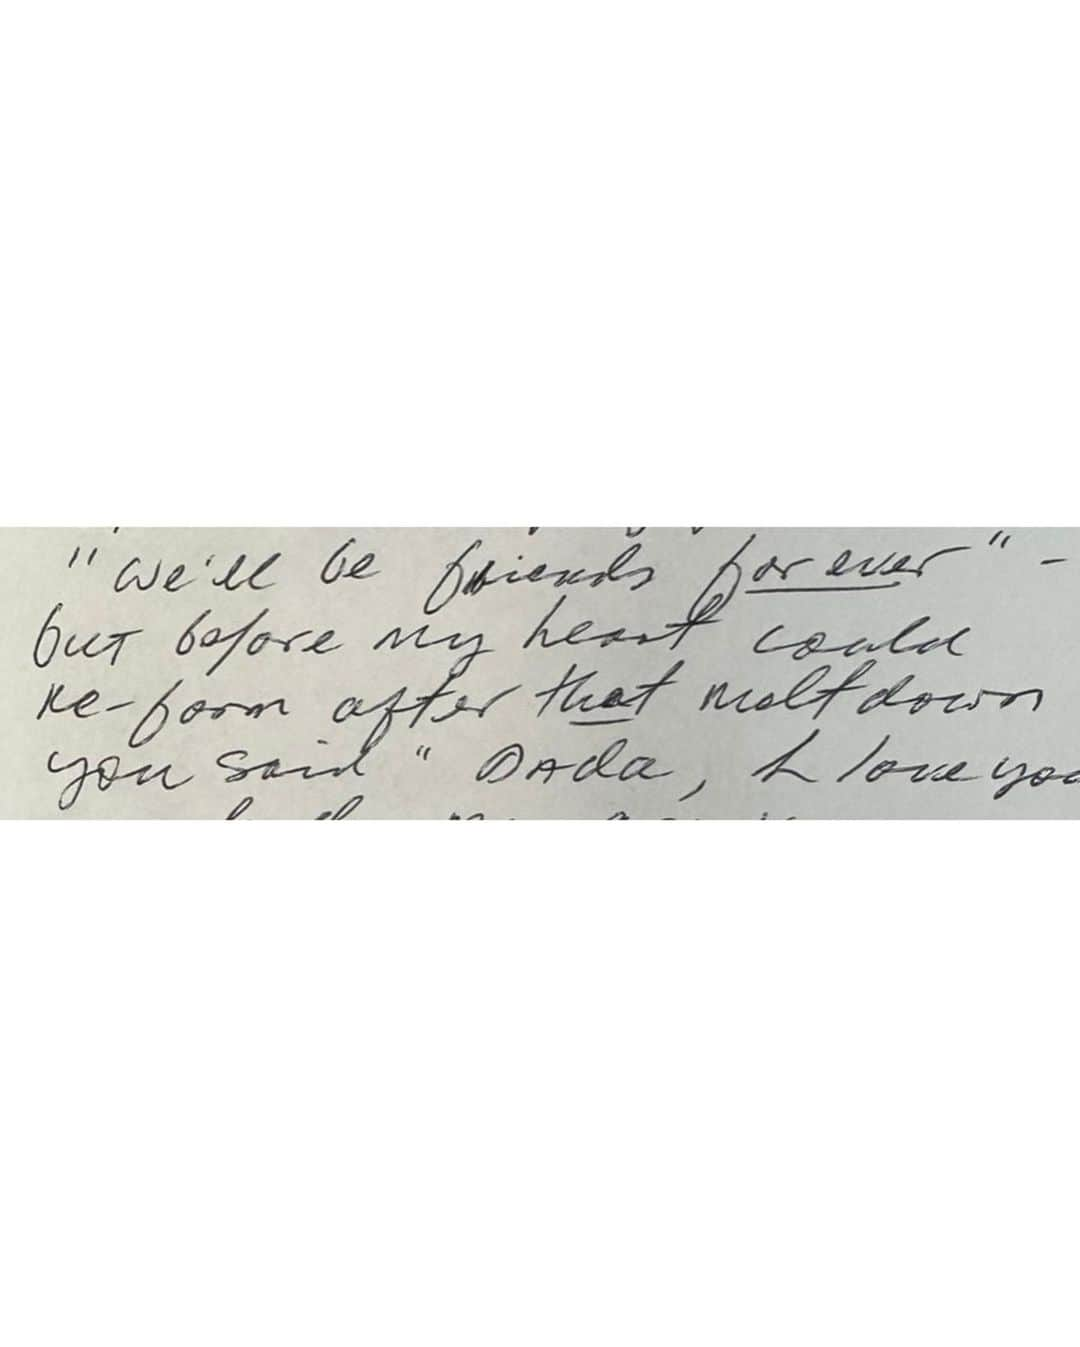 "We'll be friends forever" -
but before my heart could
re-form after that meltdown
you said "Dada, I love you